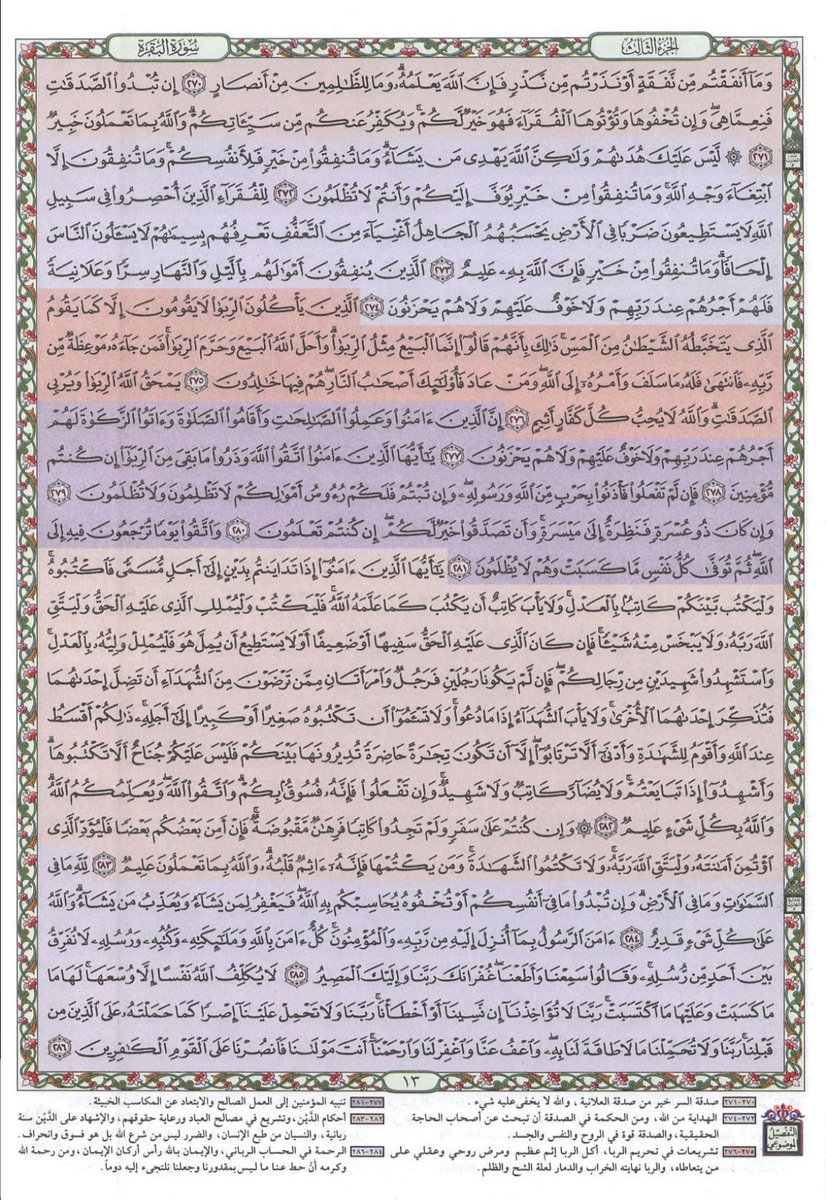 الجزء الثالث
سورة البقرة
وَمَآ أَنفَقْتُم مِّن نَّفَقَةٍ أَوْ نَذَرْتُم مِّن نَّذْرٍ فَإِنَّ ٱللَّهَ يَعْلَمُهُۥۗ وَمَا لِلظَّـٰلِمِينَ مِنْ أَنصَارٍ ٢٧٠ إِن تُبْدُوا۟ ٱلصَّدَقَـٰتِ
فَنِعِمَّا هِىَۖ وَإِن تُخْفُوهَا وَتُؤْتُوهَا ٱلْفُقَرَآءَ فَهُوَ خَيْرٌ لَّكُمْۚ وَيُكَفِّرُ عَنكُم مِّن سَيِّـَٔاتِكُمْۗ وَٱللَّهُ بِمَا تَعْمَلُونَ خَبِيرٌ
٢٧١ ۞ لَّيْسَ عَلَيْكَ هُدَىٰهُمْ وَلَـٰكِنَّ ٱللَّهَ يَهْدِى مَن يَشَآءُۗ وَمَا تُنفِقُوا۟ مِنْ خَيْرٍ فَلِأَنفُسِكُمْۚ وَمَا تُنفِقُونَ إِلَّا
ٱبْتِغَآءَ وَجْهِ ٱللَّهِۚ وَمَا تُنفِقُوا۟ مِنْ خَيْرٍ يُوَفَّ إِلَيْكُمْ وَأَنتُمْ لَا تُظْلَمُونَ ٢٧٢ لِلْفُقَرَآءِ ٱلَّذِينَ أُحْصِرُوا۟ فِى سَبِيلِ
ٱللَّهِ لَا يَسْتَطِيعُونَ ضَرْبًا فِى ٱلْأَرْضِ يَحْسَبُهُمُ ٱلْجَاهِلُ أَغْنِيَآءَ مِنَ ٱلتَّعَفُّفِ تَعْرِفُهُم بِسِيمَـٰهُمْ لَا يَسْـَٔلُونَ ٱلنَّاسَ
إِلْحَافًاۗ وَمَا تُنفِقُوا۟ مِنْ خَيْرٍ فَإِنَّ ٱللَّهَ بِهِۦ عَلِيمٌ ٢٧٣ ٱلَّذِينَ يُنفِقُونَ أَمْوَٰلَهُم بِٱلَّيْلِ وَٱلنَّهَارِ سِرًّا وَعَلَانِيَةً
فَلَهُمْ أَجْرُهُمْ عِندَ رَبِّهِمْ وَلَا خَوْفٌ عَلَيْهِمْ وَلَا هُمْ يَحْزَنُونَ ٢٧٤ ٱلَّذِينَ يَأْكُلُونَ ٱلرِّبَوٰا۟ لَا يَقُومُونَ إِلَّا كَمَا يَقُومُ
ٱلَّذِى يَتَخَبَّطُهُ ٱلشَّيْطَـٰنُ مِنَ ٱلْمَسِّۚ ذَٰلِكَ بِأَنَّهُمْ قَالُوٓا۟ إِنَّمَا ٱلْبَيْعُ مِثْلُ ٱلرِّبَوٰا۟ۗ وَأَحَلَّ ٱللَّهُ ٱلْبَيْعَ وَحَرَّمَ ٱلرِّبَوٰا۟ۚ فَمَن جَآءَهُۥ مَوْعِظَةٌ مِّن
رَّبِّهِۦ فَٱنتَهَىٰ فَلَهُۥ مَا سَلَفَ وَأَمْرُهُۥٓ إِلَى ٱللَّهِۖ وَمَنْ عَادَ فَأُو۟لَـٰٓئِكَ أَصْحَـٰبُ ٱلنَّارِۖ هُمْ فِيهَا خَـٰلِدُونَ ٢٧٥ يَمْحَقُ ٱللَّهُ ٱلرِّبَوٰا۟ وَيُرْبِى
ٱلصَّدَقَـٰتِۗ وَٱللَّهُ لَا يُحِبُّ كُلَّ كَفَّارٍ أَثِيمٍ ٢٧٦ إِنَّ ٱلَّذِينَ ءَامَنُوا۟ وَعَمِلُوا۟ ٱلصَّـٰلِحَـٰتِ وَأَقَامُوا۟ ٱلصَّلَوٰةَ وَءَاتَوُا۟ ٱلزَّكَوٰةَ لَهُمْ
أَجْرُهُمْ عِندَ رَبِّهِمْ وَلَا خَوْفٌ عَلَيْهِمْ وَلَا هُمْ يَحْزَنُونَ ٢٧٧ يَـٰٓأَيُّهَا ٱلَّذِينَ ءَامَنُوا۟ ٱتَّقُوا۟ ٱللَّهَ وَذَرُوا۟ مَا بَقِىَ مِنَ ٱلرِّبَوٰٓا۟ إِن كُنتُم
مُّؤْمِنِينَ ٢٧٨ فَإِن لَّمْ تَفْعَلُوا۟ فَأْذَنُوا۟ بِحَرْبٍ مِّنَ ٱللَّهِ وَرَسُولِهِۦۖ وَإِن تُبْتُمْ فَلَكُمْ رُءُوسُ أَمْوَٰلِكُمْ لَا تَظْلِمُونَ وَلَا تُظْلَمُونَ ٢٧٩
وَإِن كَانَ ذُو عُسْرَةٍ فَنَظِرَةٌ إِلَىٰ مَيْسَرَةٍۚ وَأَن تَصَدَّقُوا۟ خَيْرٌ لَّكُمْۖ إِن كُنتُمْ تَعْلَمُونَ ٢٨٠ وَٱتَّقُوا۟ يَوْمًا تُرْجَعُونَ فِيهِ إِلَى
ٱللَّهِۖ ثُمَّ تُوَفَّىٰ كُلُّ نَفْسٍ مَّا كَسَبَتْ وَهُمْ لَا يُظْلَمُونَ ٢٨١ يَـٰٓأَيُّهَا ٱلَّذِينَ ءَامَنُوٓا۟ إِذَا تَدَايَنتُم بِدَيْنٍ إِلَىٰٓ أَجَلٍ مُّسَمًّى فَٱكْتُبُوهُۚ
وَلْيَكْتُب بَّيْنَكُمْ كَاتِبٌۢ بِٱلْعَدْلِۚ وَلَا يَأْبَ كَاتِبٌ أَن يَكْتُبَ كَمَا عَلَّمَهُ ٱللَّهُۚ فَلْيَكْتُبْ وَلْيُمْلِلِ ٱلَّذِى عَلَيْهِ ٱلْحَقُّ وَلْيَتَّقِ
ٱللَّهَ رَبَّهُۥ وَلَا يَبْخَسْ مِنْهُ شَيْـًٔاۚ فَإِن كَانَ ٱلَّذِى عَلَيْهِ ٱلْحَقُّ سَفِيهًا أَوْ ضَعِيفًا أَوْ لَا يَسْتَطِيعُ أَن يُمِلَّ هُوَ فَلْيُمْلِلْ وَلِيُّهُۥ بِٱلْعَدْلِۚ
وَٱسْتَشْهِدُوا۟ شَهِيدَيْنِ مِن رِّجَالِكُمْۖ فَإِن لَّمْ يَكُونَا رَجُلَيْنِ فَرَجُلٌ وَٱمْرَأَتَانِ مِمَّن تَرْضَوْنَ مِنَ ٱلشُّهَدَآءِ أَن تَضِلَّ إِحْدَىٰهُمَا
فَتُذَكِّرَ إِحْدَىٰهُمَا ٱلْأُخْرَىٰۚ وَلَا يَأْبَ ٱلشُّهَدَآءُ إِذَا مَا دُعُوا۟ۚ وَلَا تَسْـَٔمُوٓا۟ أَن تَكْتُبُوهُ صَغِيرًا أَوْ كَبِيرًا إِلَىٰٓ أَجَلِهِۦۚ ذَٰلِكُمْ أَقْسَطُ
عِندَ ٱللَّهِ وَأَقْوَمُ لِلشَّهَـٰدَةِ وَأَدْنَىٰٓ أَلَّا تَرْتَابُوٓا۟ۖ إِلَّآ أَن تَكُونَ تِجَـٰرَةً حَاضِرَةً تُدِيرُونَهَا بَيْنَكُمْ فَلَيْسَ عَلَيْكُمْ جُنَاحٌ أَلَّا تَكْتُبُوهَاۗ
وَأَشْهِدُوٓا۟ إِذَا تَبَايَعْتُمْۚ وَلَا يُضَآرَّ كَاتِبٌ وَلَا شَهِيدٌۚ وَإِن تَفْعَلُوا۟ فَإِنَّهُۥ فُسُوقٌۢ بِكُمْۗ وَٱتَّقُوا۟ ٱللَّهَۖ وَيُعَلِّمُكُمُ ٱللَّهُۗ
وَٱللَّهُ بِكُلِّ شَىْءٍ عَلِيمٌ ٢٨٢ ۞ وَإِن كُنتُمْ عَلَىٰ سَفَرٍ وَلَمْ تَجِدُوا۟ كَاتِبًا فَرِهَـٰنٌ مَّقْبُوضَةٌۖ فَإِنْ أَمِنَ بَعْضُكُم بَعْضًا فَلْيُؤَدِّ ٱلَّذِى
ٱؤْتُمِنَ أَمَـٰنَتَهُۥ وَلْيَتَّقِ ٱللَّهَ رَبَّهُۥۗ وَلَا تَكْتُمُوا۟ ٱلشَّهَـٰدَةَۚ وَمَن يَكْتُمْهَا فَإِنَّهُۥٓ ءَاثِمٌ قَلْبُهُۥۗ وَٱللَّهُ بِمَا تَعْمَلُونَ عَلِيمٌ ٢٨٣ لِّلَّهِ مَا فِى
ٱلسَّمَـٰوَٰتِ وَمَا فِى ٱلْأَرْضِۗ وَإِن تُبْدُوا۟ مَا فِىٓ أَنفُسِكُمْ أَوْ تُخْفُوهُ يُحَاسِبْكُم بِهِ ٱللَّهُۖ فَيَغْفِرُ لِمَن يَشَآءُ وَيُعَذِّبُ مَن يَشَآءُۗ وَٱللَّهُ
عَلَىٰ كُلِّ شَىْءٍ قَدِيرٌ ٢٨٤ ءَامَنَ ٱلرَّسُولُ بِمَآ أُنزِلَ إِلَيْهِ مِن رَّبِّهِۦ وَٱلْمُؤْمِنُونَۚ كُلٌّ ءَامَنَ بِٱللَّهِ وَمَلَـٰٓئِكَتِهِۦ وَكُتُبِهِۦ وَرُسُلِهِۦ لَا نُفَرِّقُ
بَيْنَ أَحَدٍ مِّن رُّسُلِهِۦۚ وَقَالُوا۟ سَمِعْنَا وَأَطَعْنَاۖ غُفْرَانَكَ رَبَّنَا وَإِلَيْكَ ٱلْمَصِيرُ ٢٨٥ لَا يُكَلِّفُ ٱللَّهُ نَفْسًا إِلَّا وُسْعَهَاۚ لَهَا مَا
مَا كَسَبَتْ وَعَلَيْهَا مَا ٱكْتَسَبَتْۗ رَبَّنَا لَا تُؤَاخِذْنَآ إِن نَّسِينَآ أَوْ أَخْطَأْنَاۚ رَبَّنَا وَلَا تَحْمِلْ عَلَيْنَآ إِصْرًا كَمَا حَمَلْتَهُۥ عَلَى ٱلَّذِينَ مِن
قَبْلِنَاۚ رَبَّنَا وَلَا تُحَمِّلْنَا مَا لَا طَاقَةَ لَنَا بِهِۦۖ وَٱعْفُ عَنَّا وَٱغْفِرْ لَنَا وَٱرْحَمْنَآۚ أَنتَ مَوْلَىٰنَا فَٱنصُرْنَا عَلَى ٱلْقَوْمِ ٱلْكَـٰفِرِينَ ٢٨٦
١٣
التفصيل الموضوعي
٢٧٠-٢٧١ صدقة السر خير من صدقة العلانية ، والله لا يخفى عليه شيء .
٢٧٢-٢٧٤ الهداية من الله، ومن الحكمة في الصدقة أن تبحث عن أصحاب الحاجة
الحقيقية، والصدقة قوة في الروح والنفس والجسد.
٢٧٥-٢٧٦ تشريعات في تحريم الربا، أكل الربا إثم عظيم ومرض روحي وعقلي على
من يتعاطاه، والربا نهايته الخراب والدمار لعلة الشح والظلم.
٢٧٧-٢٨١ تنبيه المؤمنين إلى العمل الصالح والابتعاد عن المكاسب الخبيثة.
٢٨٢-٢٨٣ أحكام الدَّيْن، وتشريع في مصالح العباد ورعاية حقوقهم، والإشهاد على الدَّيْن سنة
ربانية، والنسيان من طبع الإنسان، والضرر ليس من شرع الله بل هو فسوق وانحراف.
٢٨٤-٢٨٦ الرحمة في الحساب الرباني، والإيمان بالله رأس أركان الإيمان، ومن رحمة الله
وكرمه أنْ حط عنا ما ليس بمقدورنا وجعلنا نلتجىء إليه دوماً.